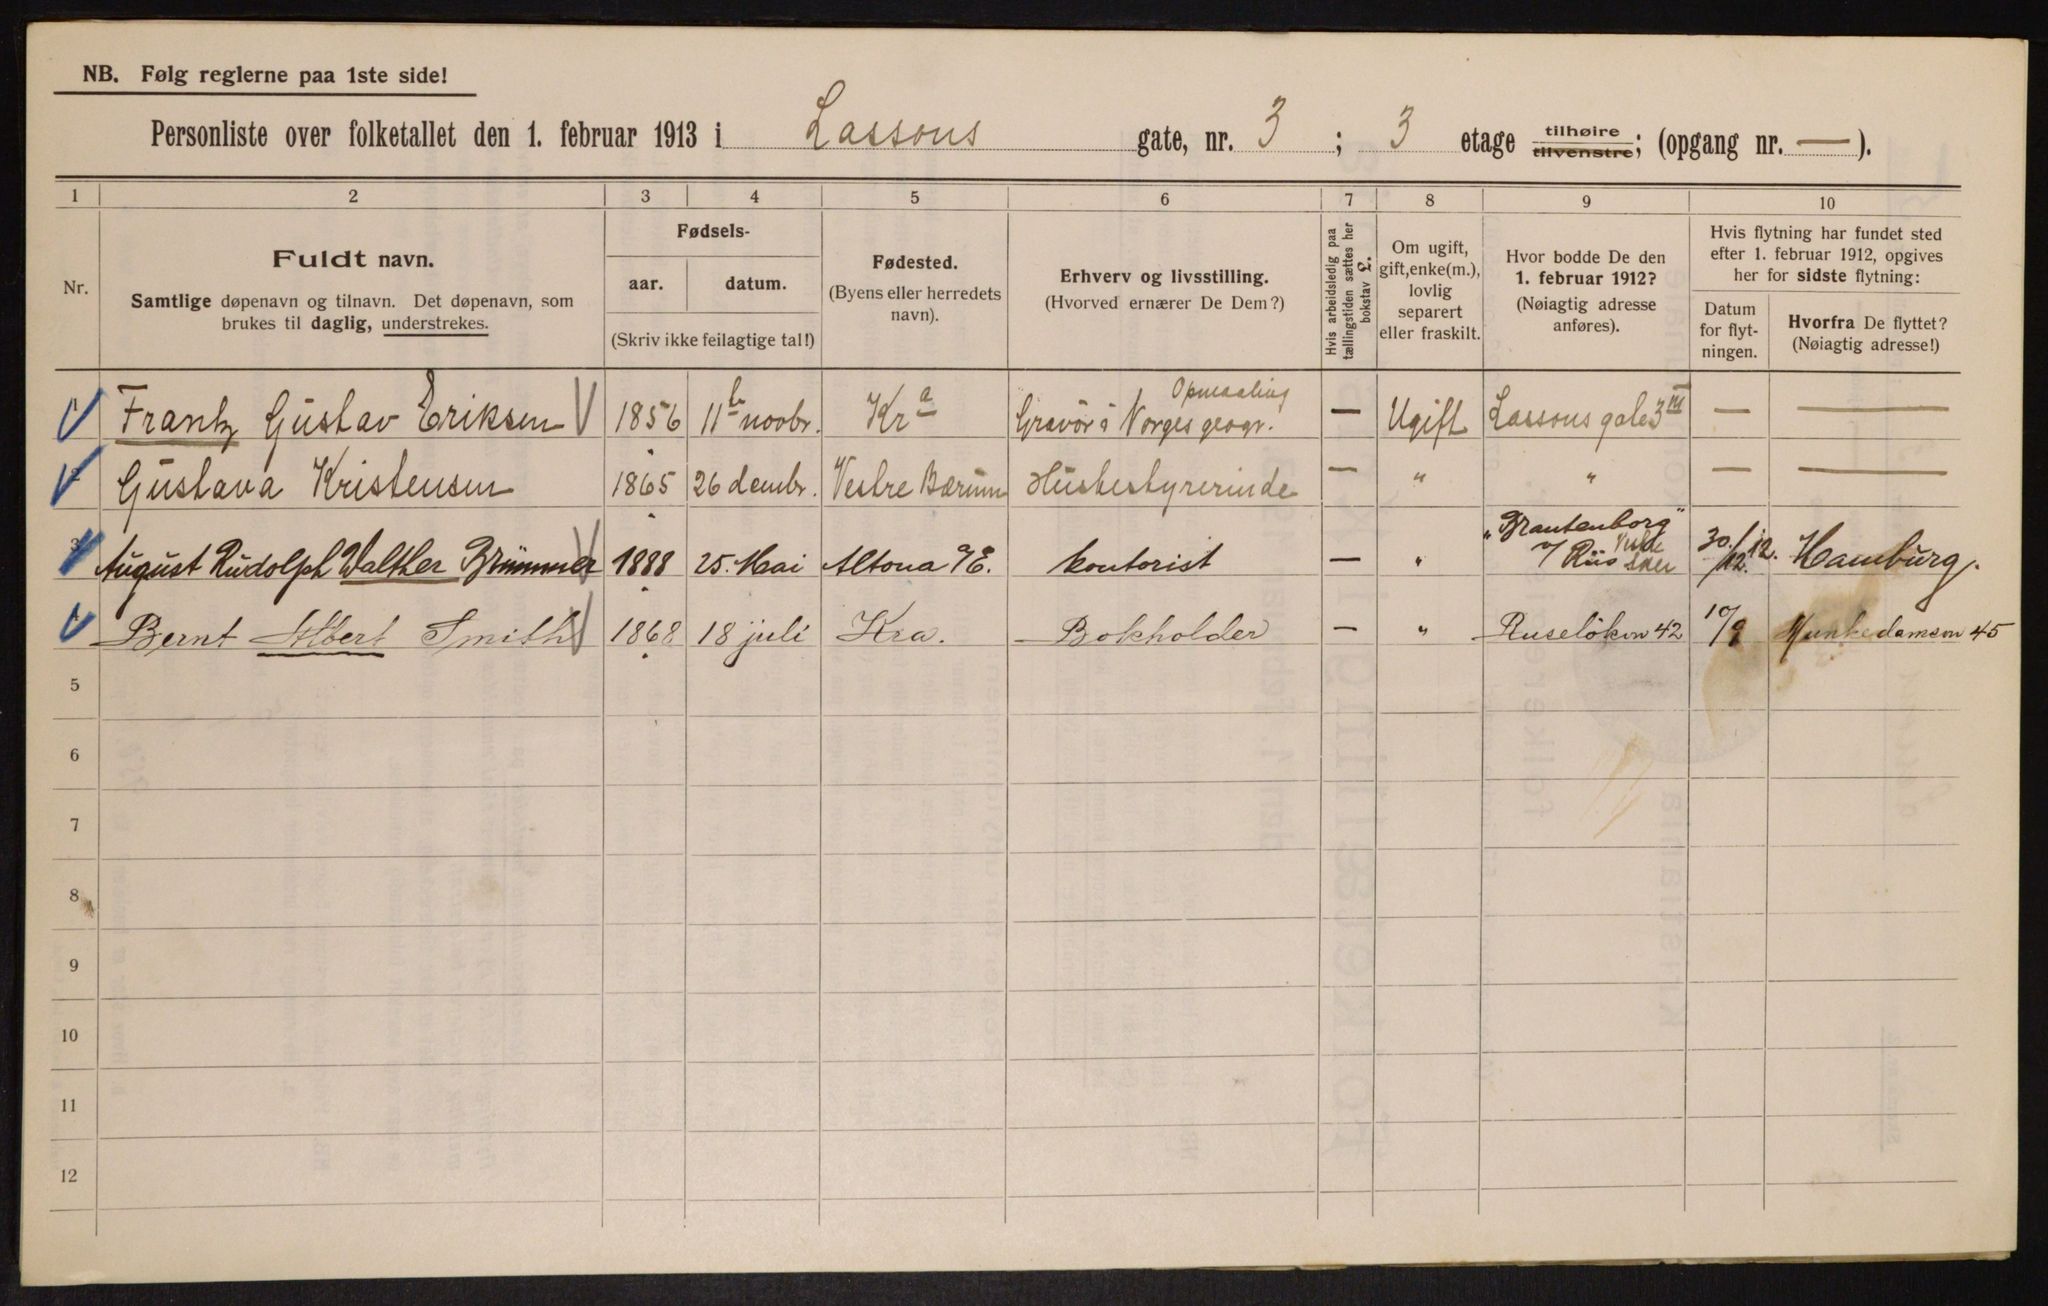 NB. Følg reglerne paa 1ste side!
Personliste over folketallet den 1. februar 1913 i Lassons gate, nr. 3 ; 3 etage tilhøire tilvenstre; (opgang nr. — ).
1 2 3 4 5 6 7 8 9 10
Nr.
Fuldt navn.
Samtlige døpenavn og tilnavn. Det døpenavn, som
brukes til daglig, understrekes.
Fødsels-
aar. datum.
(Skriv ikke feilagtige tal!)
Fødested.
(Byens eller herredets
navn).
Erhverv og livsstilling.
(Hvorved ernærer De Dem?)
Hvis arbeidsledig paa
tællingstiden sættes her
bokstav L.
Om ugift,
gift, enke(m.),
lovlig
separert
eller fraskilt.
Hvor bodde De den
1. februar 1912?
(Nøiagtig adresse
anføres).
Hvis flytning har fundet sted
efter 1. februar 1912, opgives
her for sidste flytning:
Datum
for flyt-
ningen.
Hvorfra De flyttet?
(Nøiagtig adresse!)
1 Frantz Gustav Eriksen 1856 11te novbr. Kra Gravör i Norges geogr. Opmaaling — Ugift Lassons gate 3 III — —
2 Gustava Kristensen 1865 26 dembr. Vestre Bærum Husbestyrerinde — " " — —
3 August Rudolph Walther Brümmer 1888 25. Mai Altona a/E. kontorist — " "Brantenborg" v/ Riis 30./12. 12. Hamburg.
4 Bernt Albert Smith 1868 18 juli Kra. Bokholder — " Ruseløkvn 42 10/9 Munkedamsvn 45
5
6
7
8
9
10
11
12